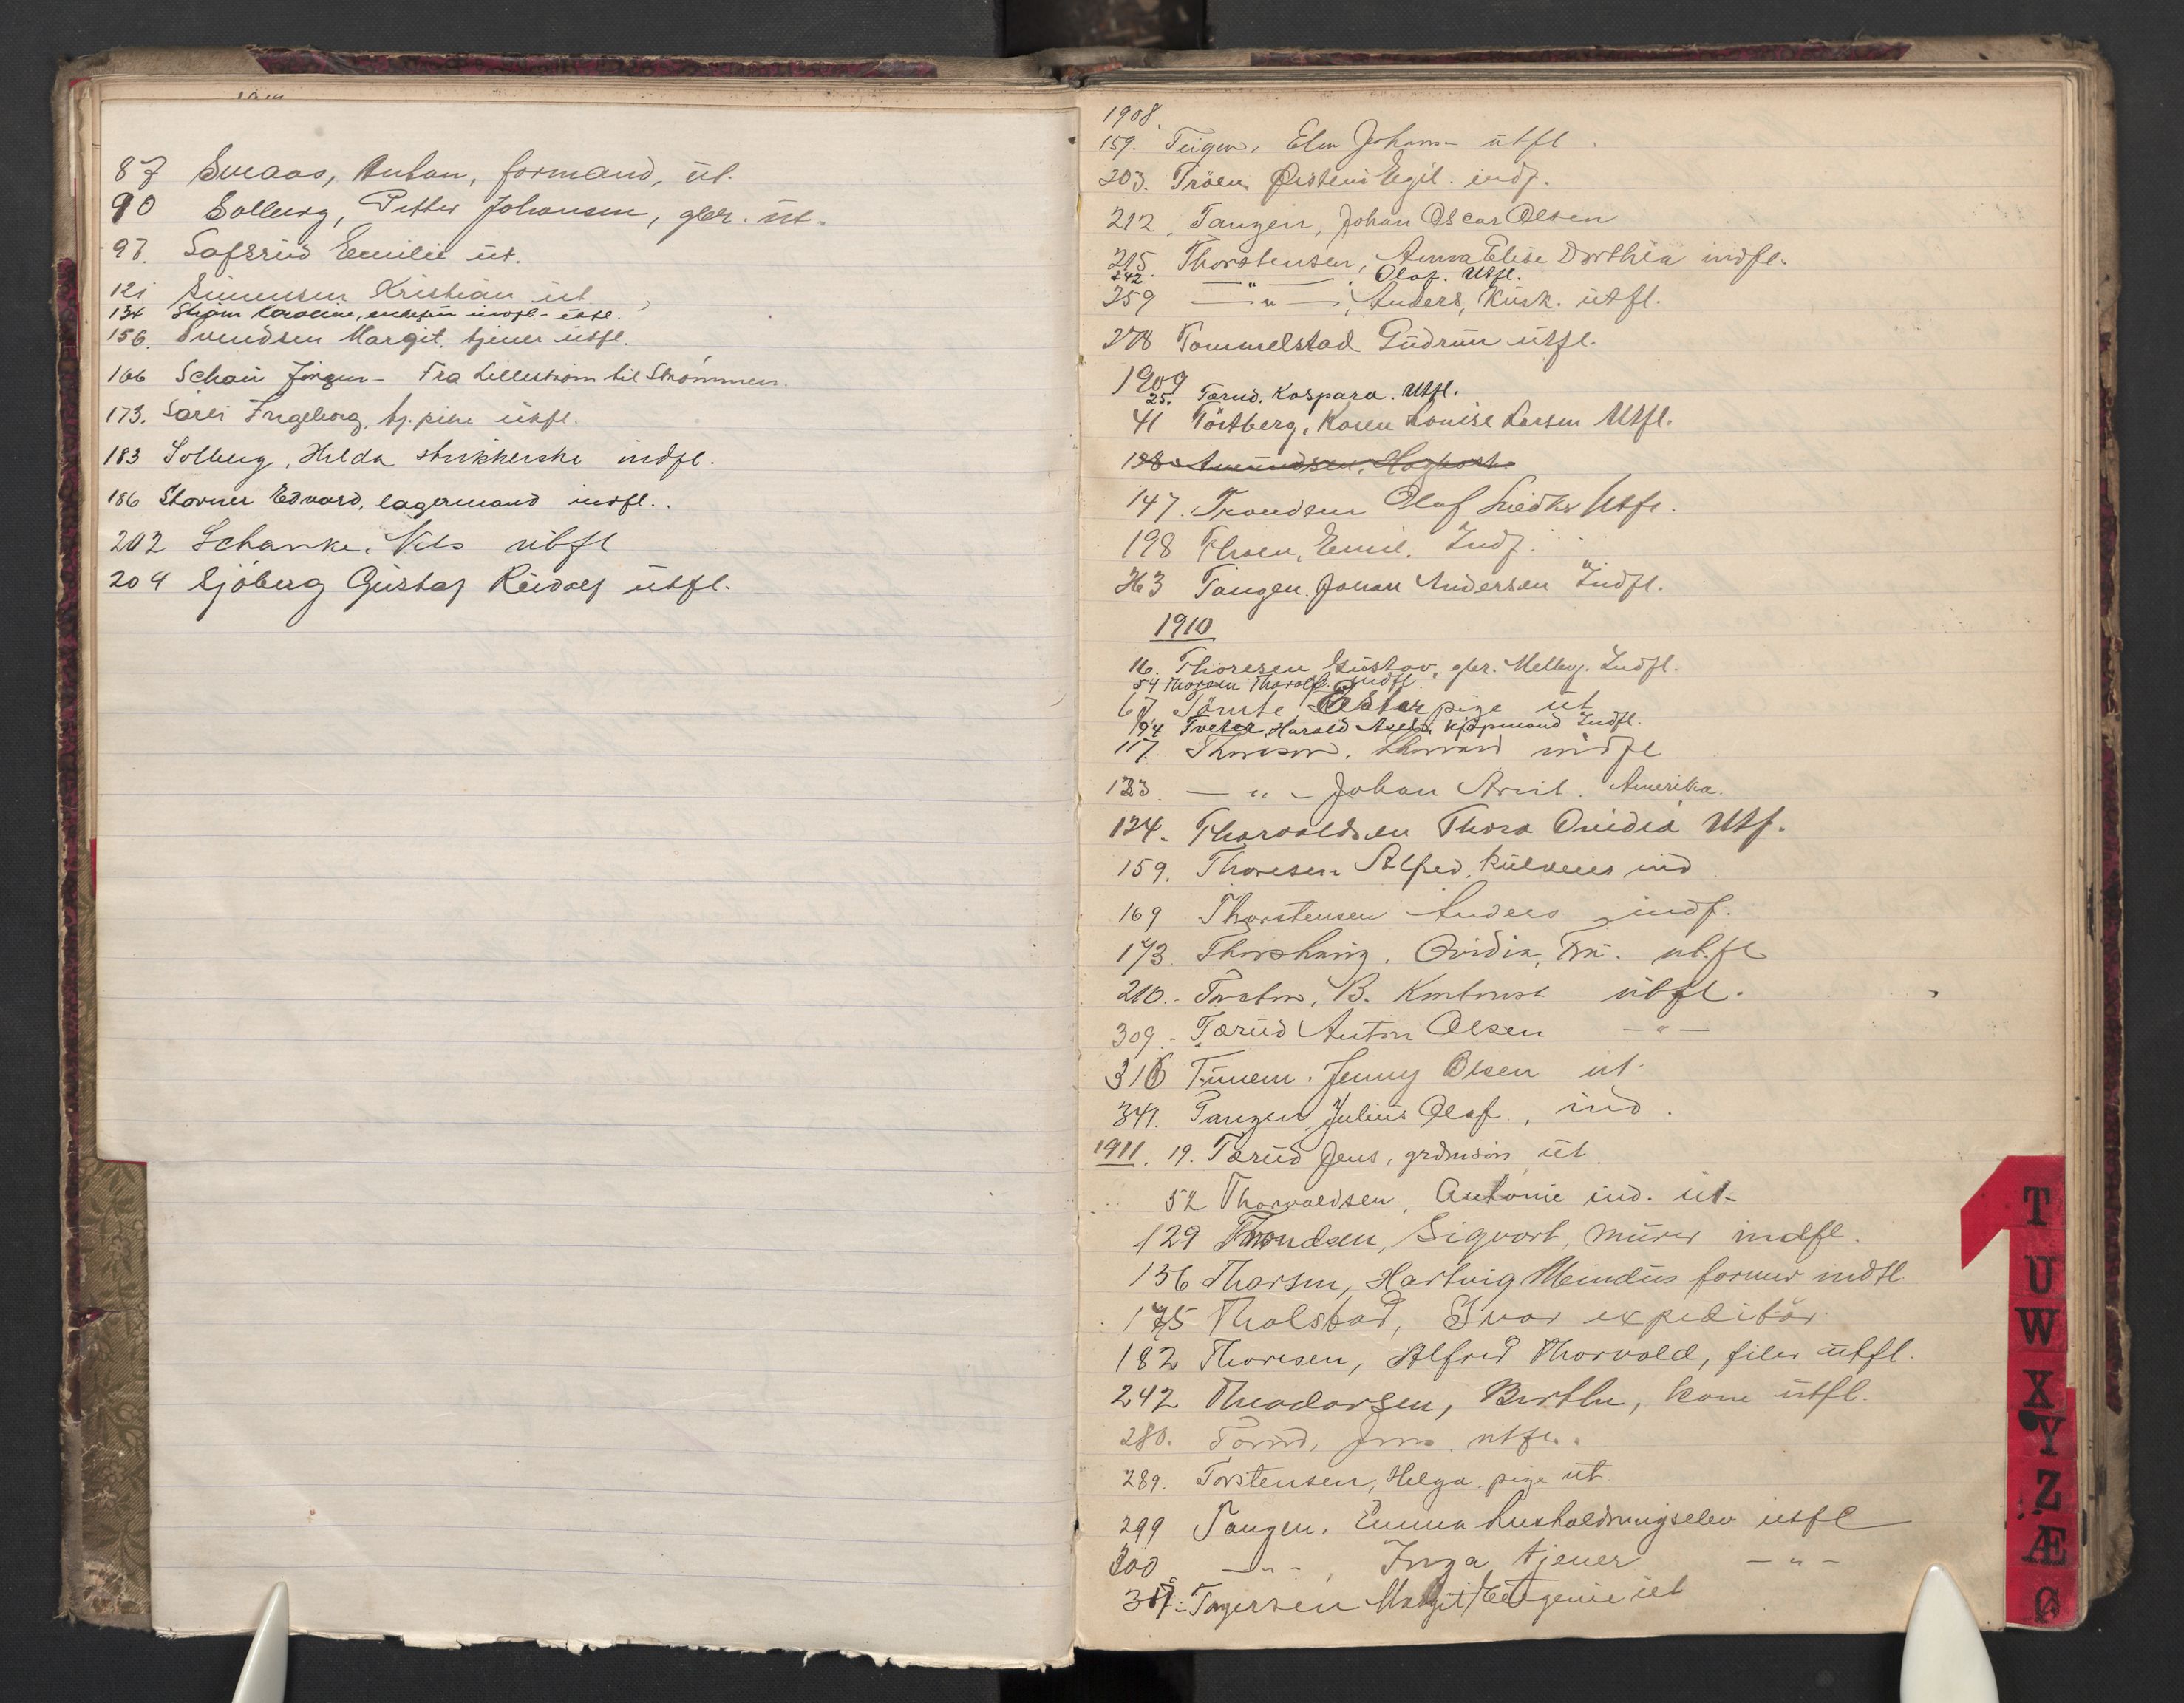 87 Sveaas, Anton, formand, út.
90 Solberg, Petter Johansen, gbr. út.
97. Lafsrúd Emilie út.
121 Simensen Kristian út
134 Strøm Karoline, indfl. - útfl.
156. Svendsen Margit. tjener útfl.
166 Schau Jörgen - Fra Lillestrøm til Strömmen.
173. Ingeborg, tj. pike útfl.
183 Solberg, Hilda strikkerske indfl.
186 Storner Edvard, lagermand indfl.
202 Schanke, Nils útfl
204 Sjöberg Gústaf Rúdolf útfl.
1908.
159. Teigen, Elen Johans- útfl.
203. Tröen Øistein Egil. indf.
212, Tangen, Johan Oscar Olsen
215. Thorstensen, Anna Elise Dorthea indfl.
242 — " — Olaf. Utfl.
259 — " —, Anders, Kúsk. útfl.
278 Tommelstad Gúdrún útfl.
1909
25. Tærud, Kaspara. Utfl.
41 Törtberg, Karen Louise Larsen Utfl.
128 Amúndsen, Hagbart
147. Trondsen Olaf Utfl.
198 Thoen, Emil. Indf.
263 Tangen. Johan Andersen Indfl.
1910
16. Thoresen Gústav, gbr. Melby. Indfl.
54 Thorsen Thorolf. Indfl.
67 Tömte Ester pige út
94 Tveter, Harald Kjøpmand Indfl.
117. Thoresen, indfl
123. — " — Johan Arnt. Amerika.
124. Thorvaldsen Thora Ovidia Utf.
159. Thoresen Alfred, ind
169 Thorstensen Anders indf.
173. Thorshaug. Ovidia, Frú. út.fl
210. B. útfl.
309. Tærúd Anton Olsen — " —
316 Jenny Olsen út.
341. Tangen Júliús Olaf., ind.
1911. 19. Tærúd Jens, grdmsön, út.
52 Thorvaldsen, Antonie ind. út-
129 Trondsen, Sigvart, múrer indfl.
136 Thorsen, Hartvig Meindús former indfl.
175 Tholstad, Ivar expeditör.
182 Thoresen, Alfred Thorvald, filer útfl.
242 Theodorsen, Berthe, kone útfl.
280. Tærúd, Jens. útfl.
289. Torstensen, Helga. pige út
299 Tangen. Emma húsholdningselev útfl
300 — " —, Inga, tjener — " —
317. Margit Eúgenie út
T
U
W
X
Y
Z
Æ
Ø